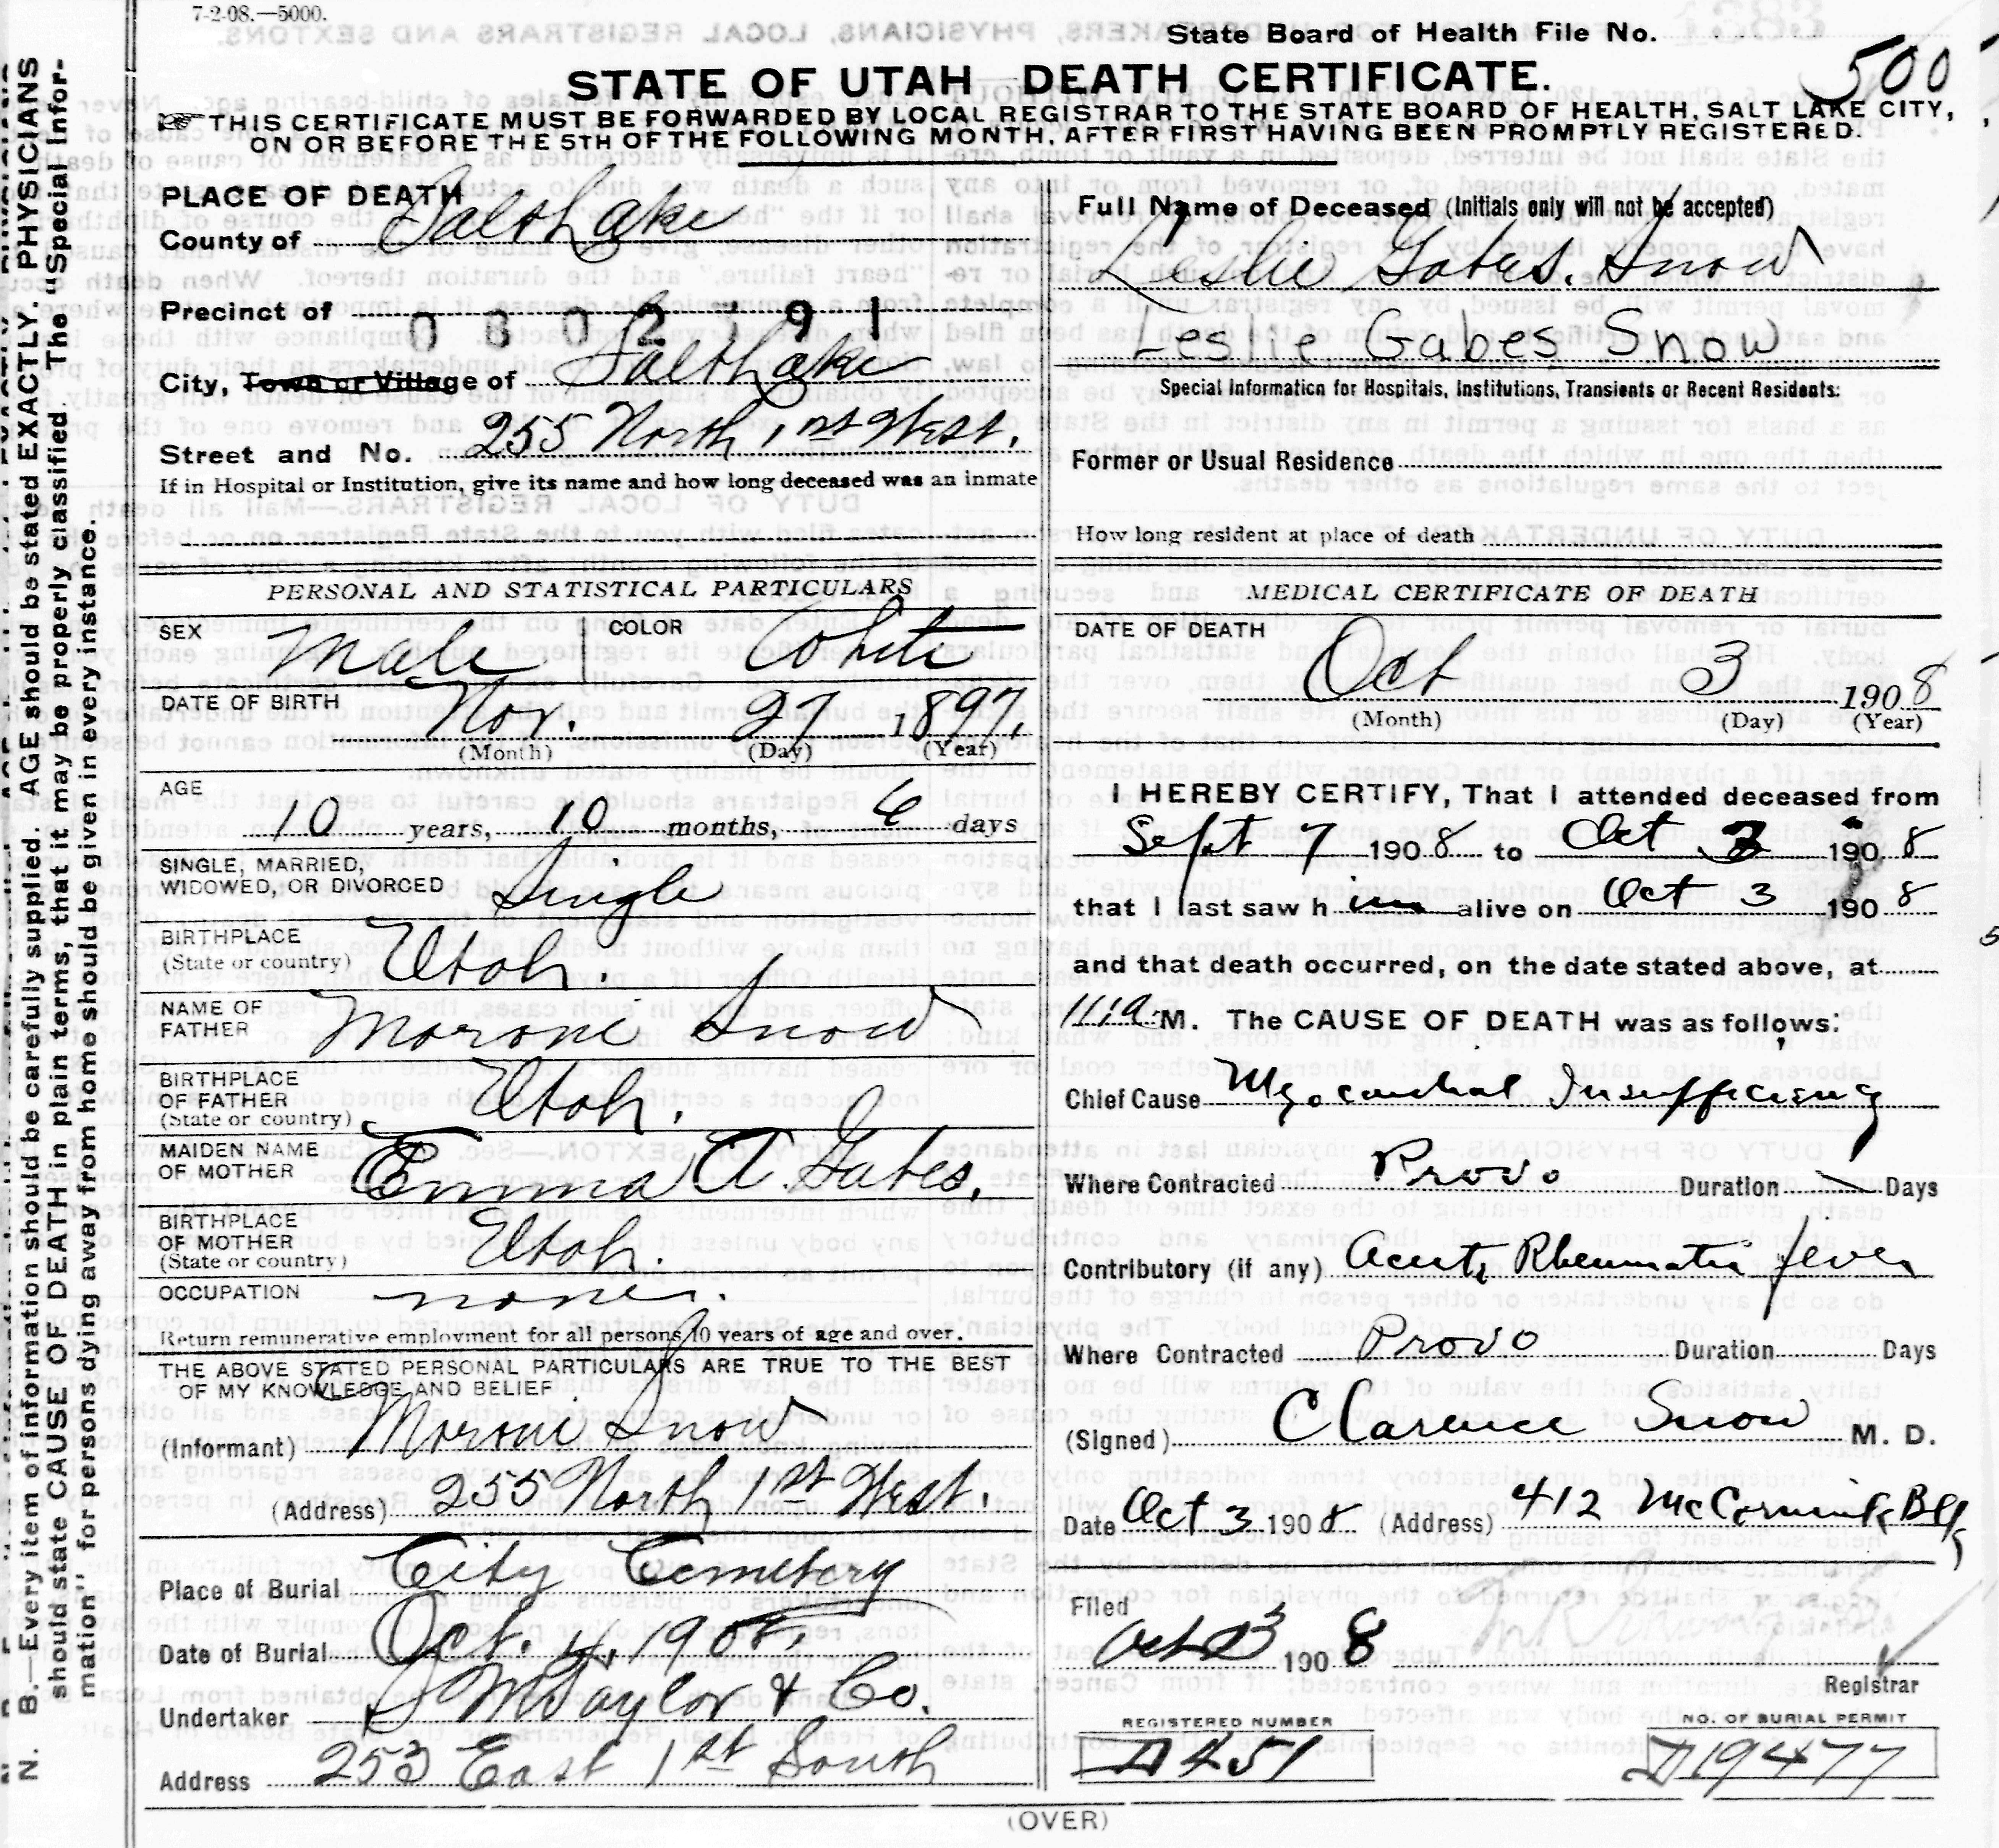 7-2-08.—5000.
State Board of Health File No.
500
STATE OF UTAH DEATH CERTIFICATE.
THIS CERTIFICATE MUST BE FORWARDED BY LOCAL REGISTRAR TO THE STATE BOARD OF HEALTH, SALT LAKE CITY,
ON OR BEFORE THE 5TH OF THE FOLLOWING MONTH, AFTER FIRST HAVING BEEN PROMPTLY REGISTERED.
N. B.—Every item of information should be carefully supplied. AGE should be stated EXACTLY. PHYSICIANS
should state CAUSE OF DEATH in plain terms, that it may be properly classified. The "Special Infor-
mation" for persons dying away from home should be given in every instance.
PLACE OF DEATH
County of Salt Lake
Precinct of
0802391
City, Town or Village of Salt Lake
Street and No. 255 North 1st West.
If in Hospital or Institution, give its name and how long deceased was an inmate
PERSONAL AND STATISTICAL PARTICULARS
SEX Male COLOR White
DATE OF BIRTH Nov. 27 1897
(Month) (Day) (Year)
AGE
10 years, 10 months, 6 days
SINGLE, MARRIED,
WIDOWED, OR DIVORCED Single
BIRTHPLACE
(State or country) Utah.
NAME OF
FATHER Moroni Snow
BIRTHPLACE
OF FATHER
(State or country) Utah.
MAIDEN NAME
OF MOTHER Emma A Gabes.
BIRTHPLACE
OF MOTHER
(State or country) Utah.
OCCUPATION none.
Return remunerative employment for all persons 10 years of age and over.
THE ABOVE STATED PERSONAL PARTICULARS ARE TRUE TO THE BEST
OF MY KNOWLEDGE AND BELIEF
(Informant) Moroni Snow
(Address) 255 North 1st West.
Place of Burial City Cemetery
Date of Burial Oct. 4, 1908.
Undertaker S M Taylor & Co.
Address 253 East 1st South
Full Name of Deceased (Initials only will not be accepted)
Leslie Gabes. Snow
Leslie Gabes Snow
Special Information for Hospitals, Institutions, Transients or Recent Residents:
Former or Usual Residence
How long resident at place of death
MEDICAL CERTIFICATE OF DEATH
DATE OF DEATH Oct 3 1908
(Month) (Day) (Year)
I HEREBY CERTIFY, That I attended deceased from
Sept 7 1908 to Oct 3 1908
that I last saw him alive on Oct 3 1908
and that death occurred, on the date stated above, at
11 a. M. The CAUSE OF DEATH was as follows:
Chief Cause Myocardial Insufficiency
Where Contracted Provo Duration Days
Contributory (if any) Acute Rheumatic fever
Where Contracted Provo Duration Days
(Signed) Clarence Snow M. D.
Date Oct 3 1908 (Address) 412 McCornick Blk
Filed
Oct 3 1908
Registrar
REGISTERED NUMBER
D451
NO. OF BURIAL PERMIT
D19477
(OVER)